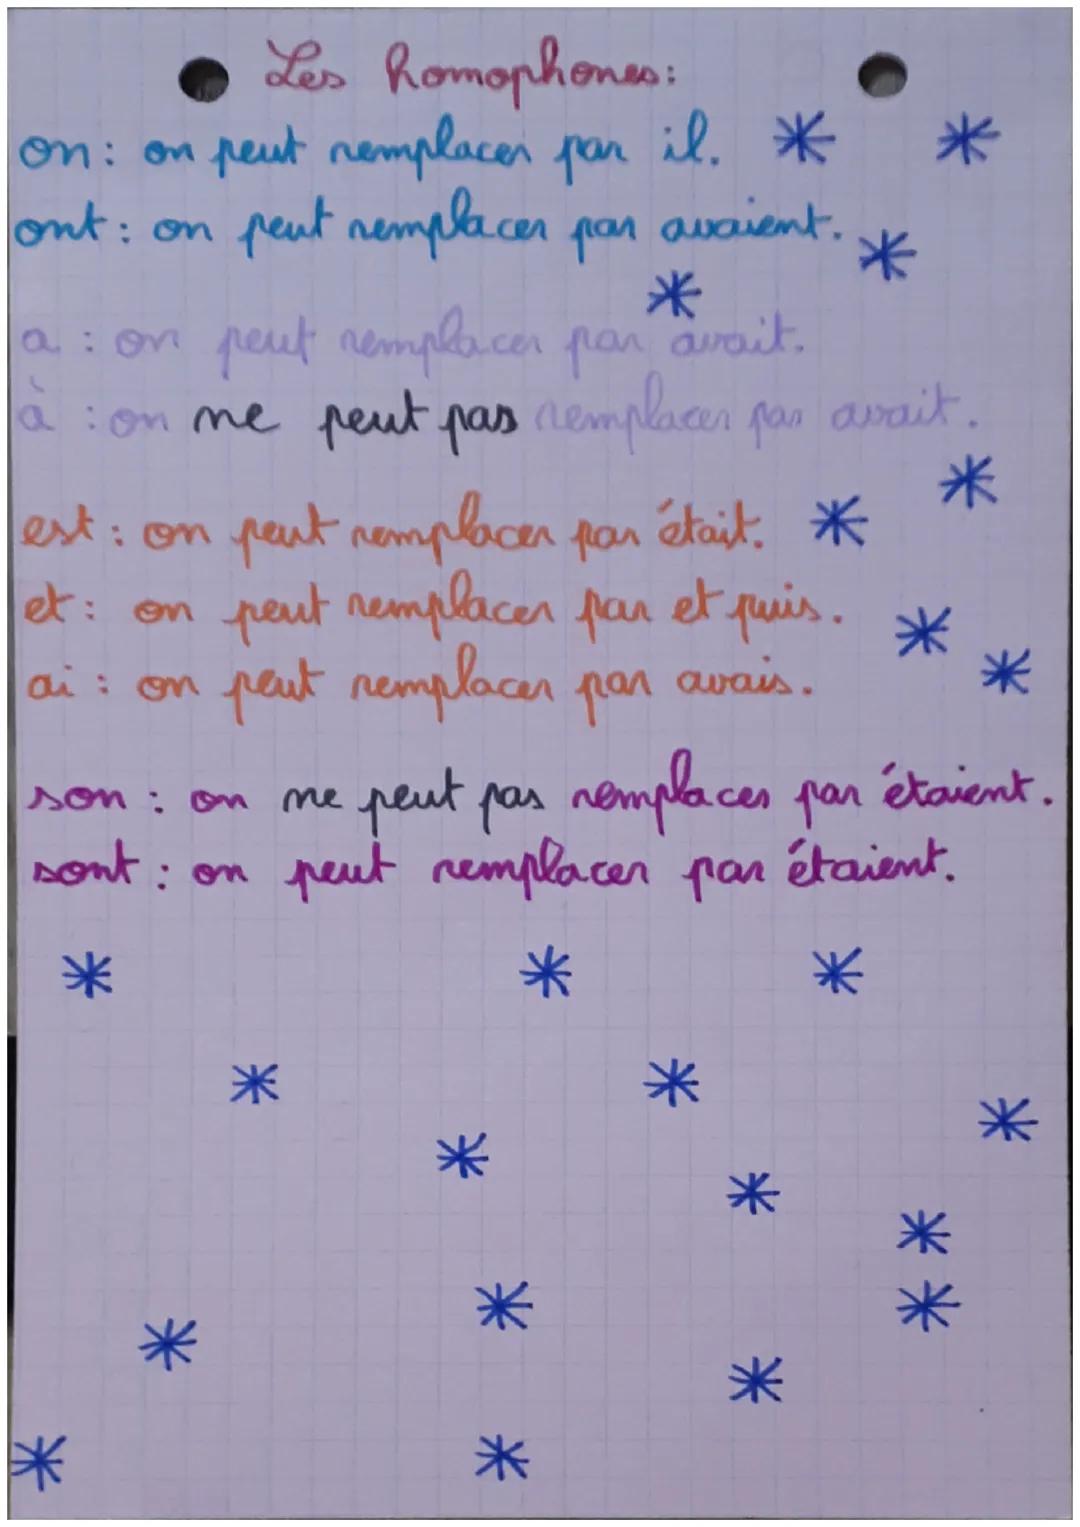 Les homophones:
on: on peut remplacer par il.
ont: on peut remplacer par avaient.
a : on peut remplacer par avait.
à : on ne peut pas remplacer par avait.
est: on peut remplacer par était.
et: on peut remplacer par et puis.
ai : on peut remplacer par avais.
son : on ne peut pas remplacer par étaient.
sont : on peut remplacer par étaient.